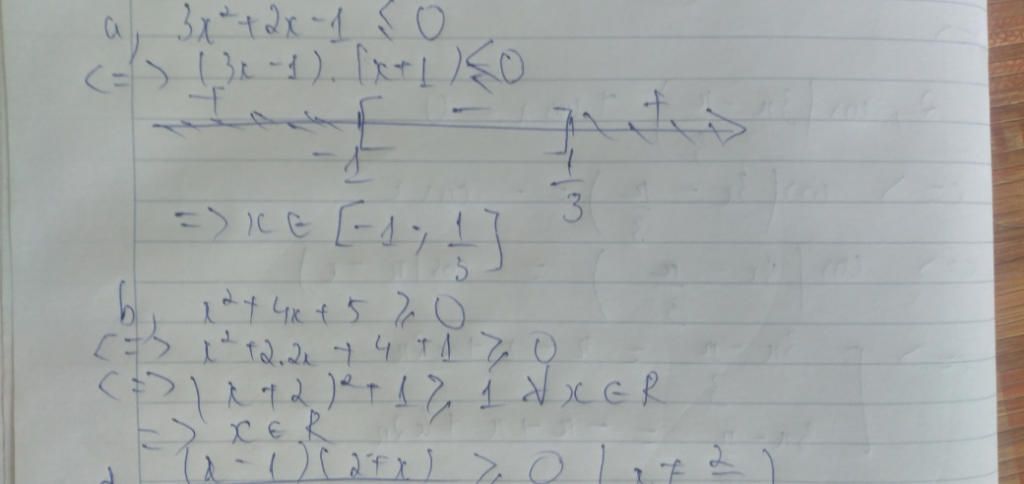 a, 3x²+2x-1 ≤ 0
<=> (3x-1).(x+1) ≤ 0
+ - +
-1 1/3
=> x ∈ [-1; 1/3]
b, x²+4x+5 ≥ 0
<=> x²+2.2x+4+1 ≥ 0
<=> (x+2)²+1 ≥ 1 ∀ x ∈ R
=> x ∈ R
(x-1)(2+x) ≥ 0 (x ≠ 2